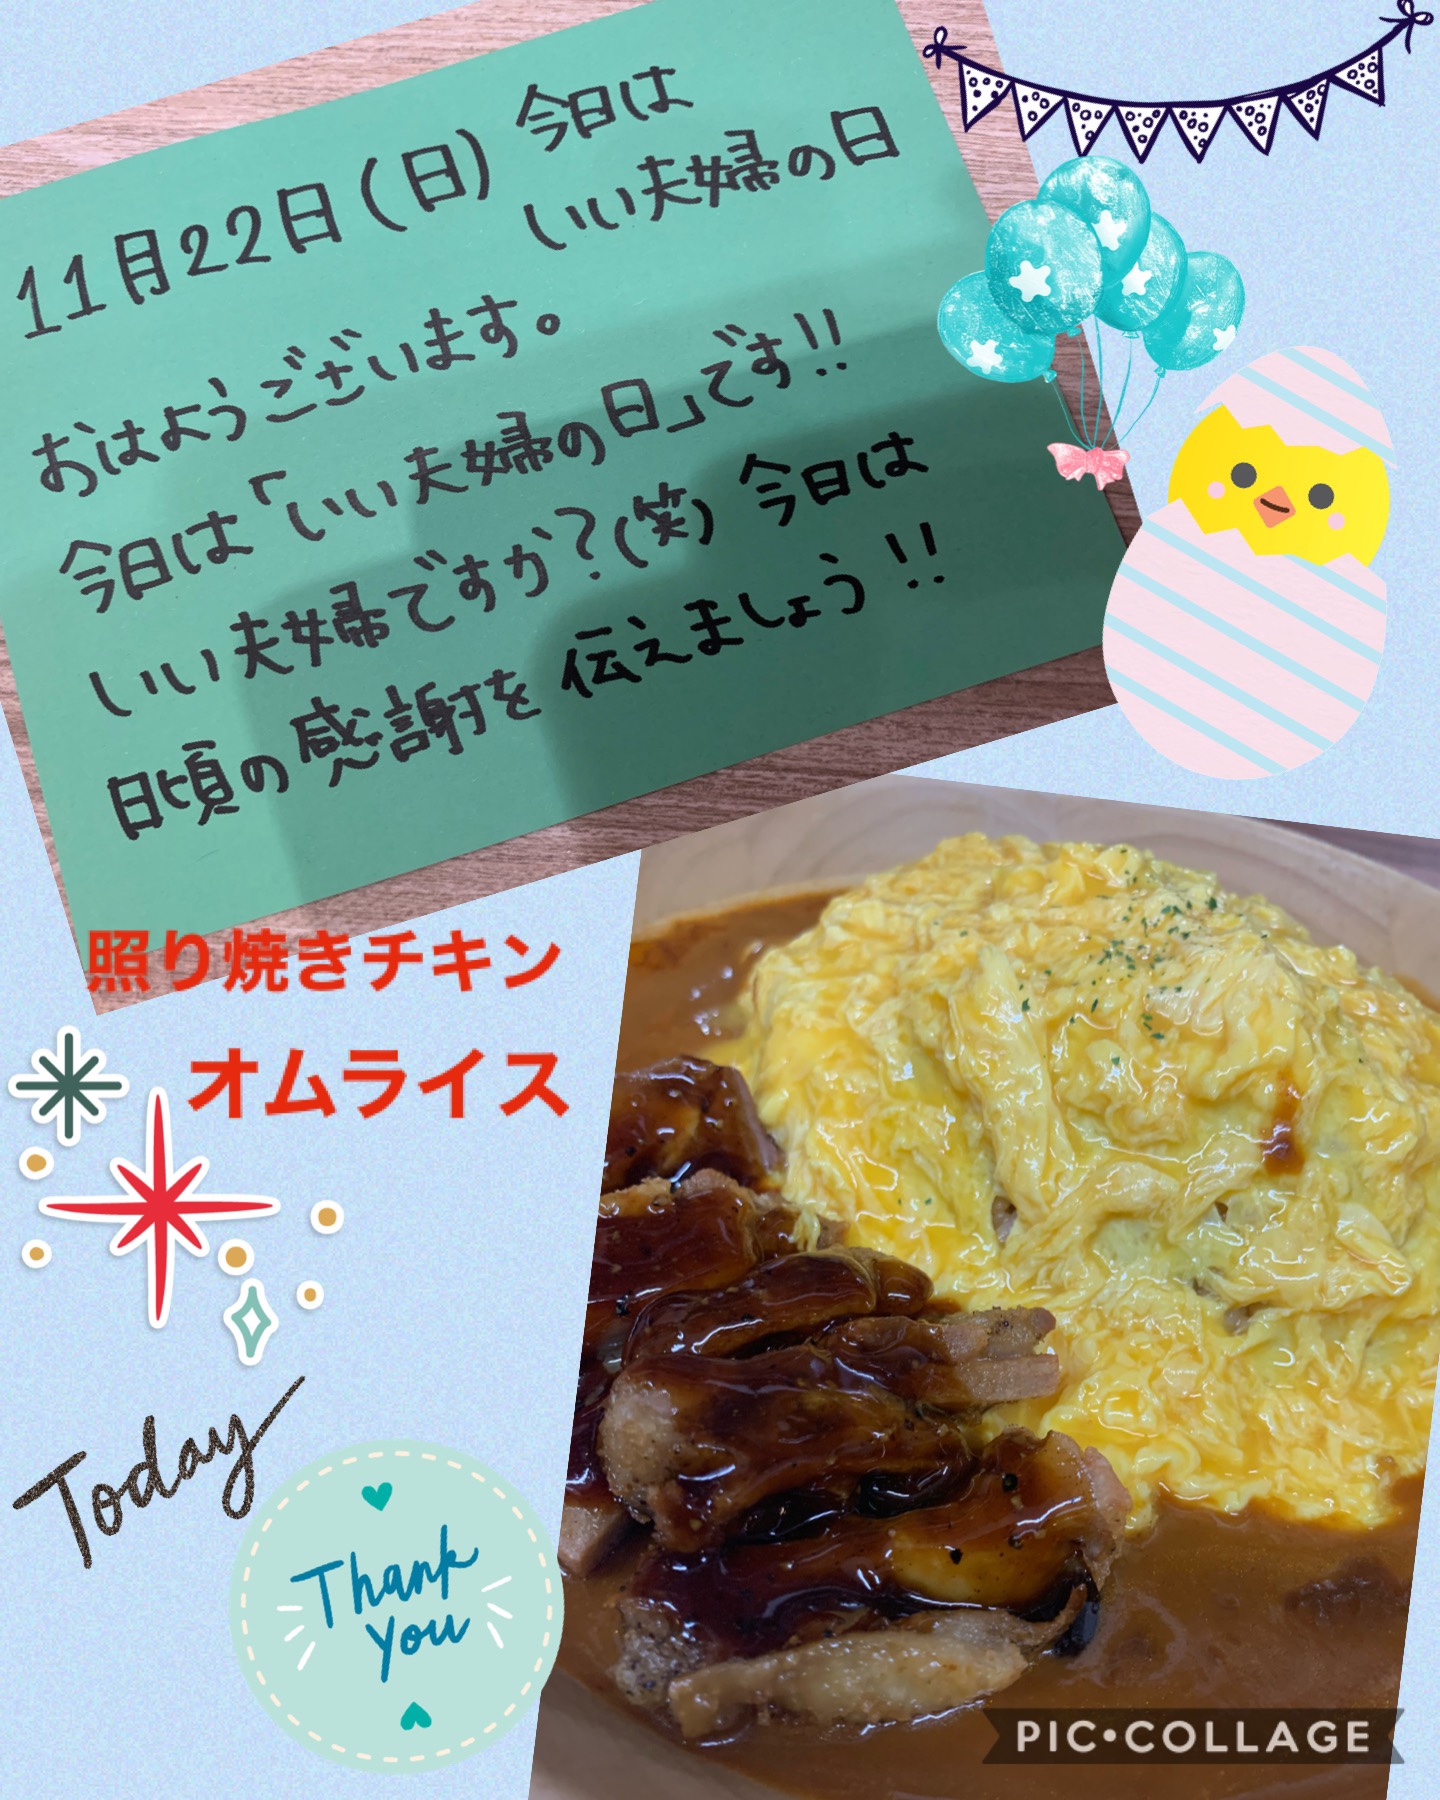 11月22日(日) 今日は
いい夫婦の日
おはようございます。
今日は「いい夫婦の日」です!!
いい夫婦ですか?(笑) 今日は
日頃の感謝を伝えましょう!!
照り焼きチキン
オムライス
Today
Thank
You
PIC•COLLAGE